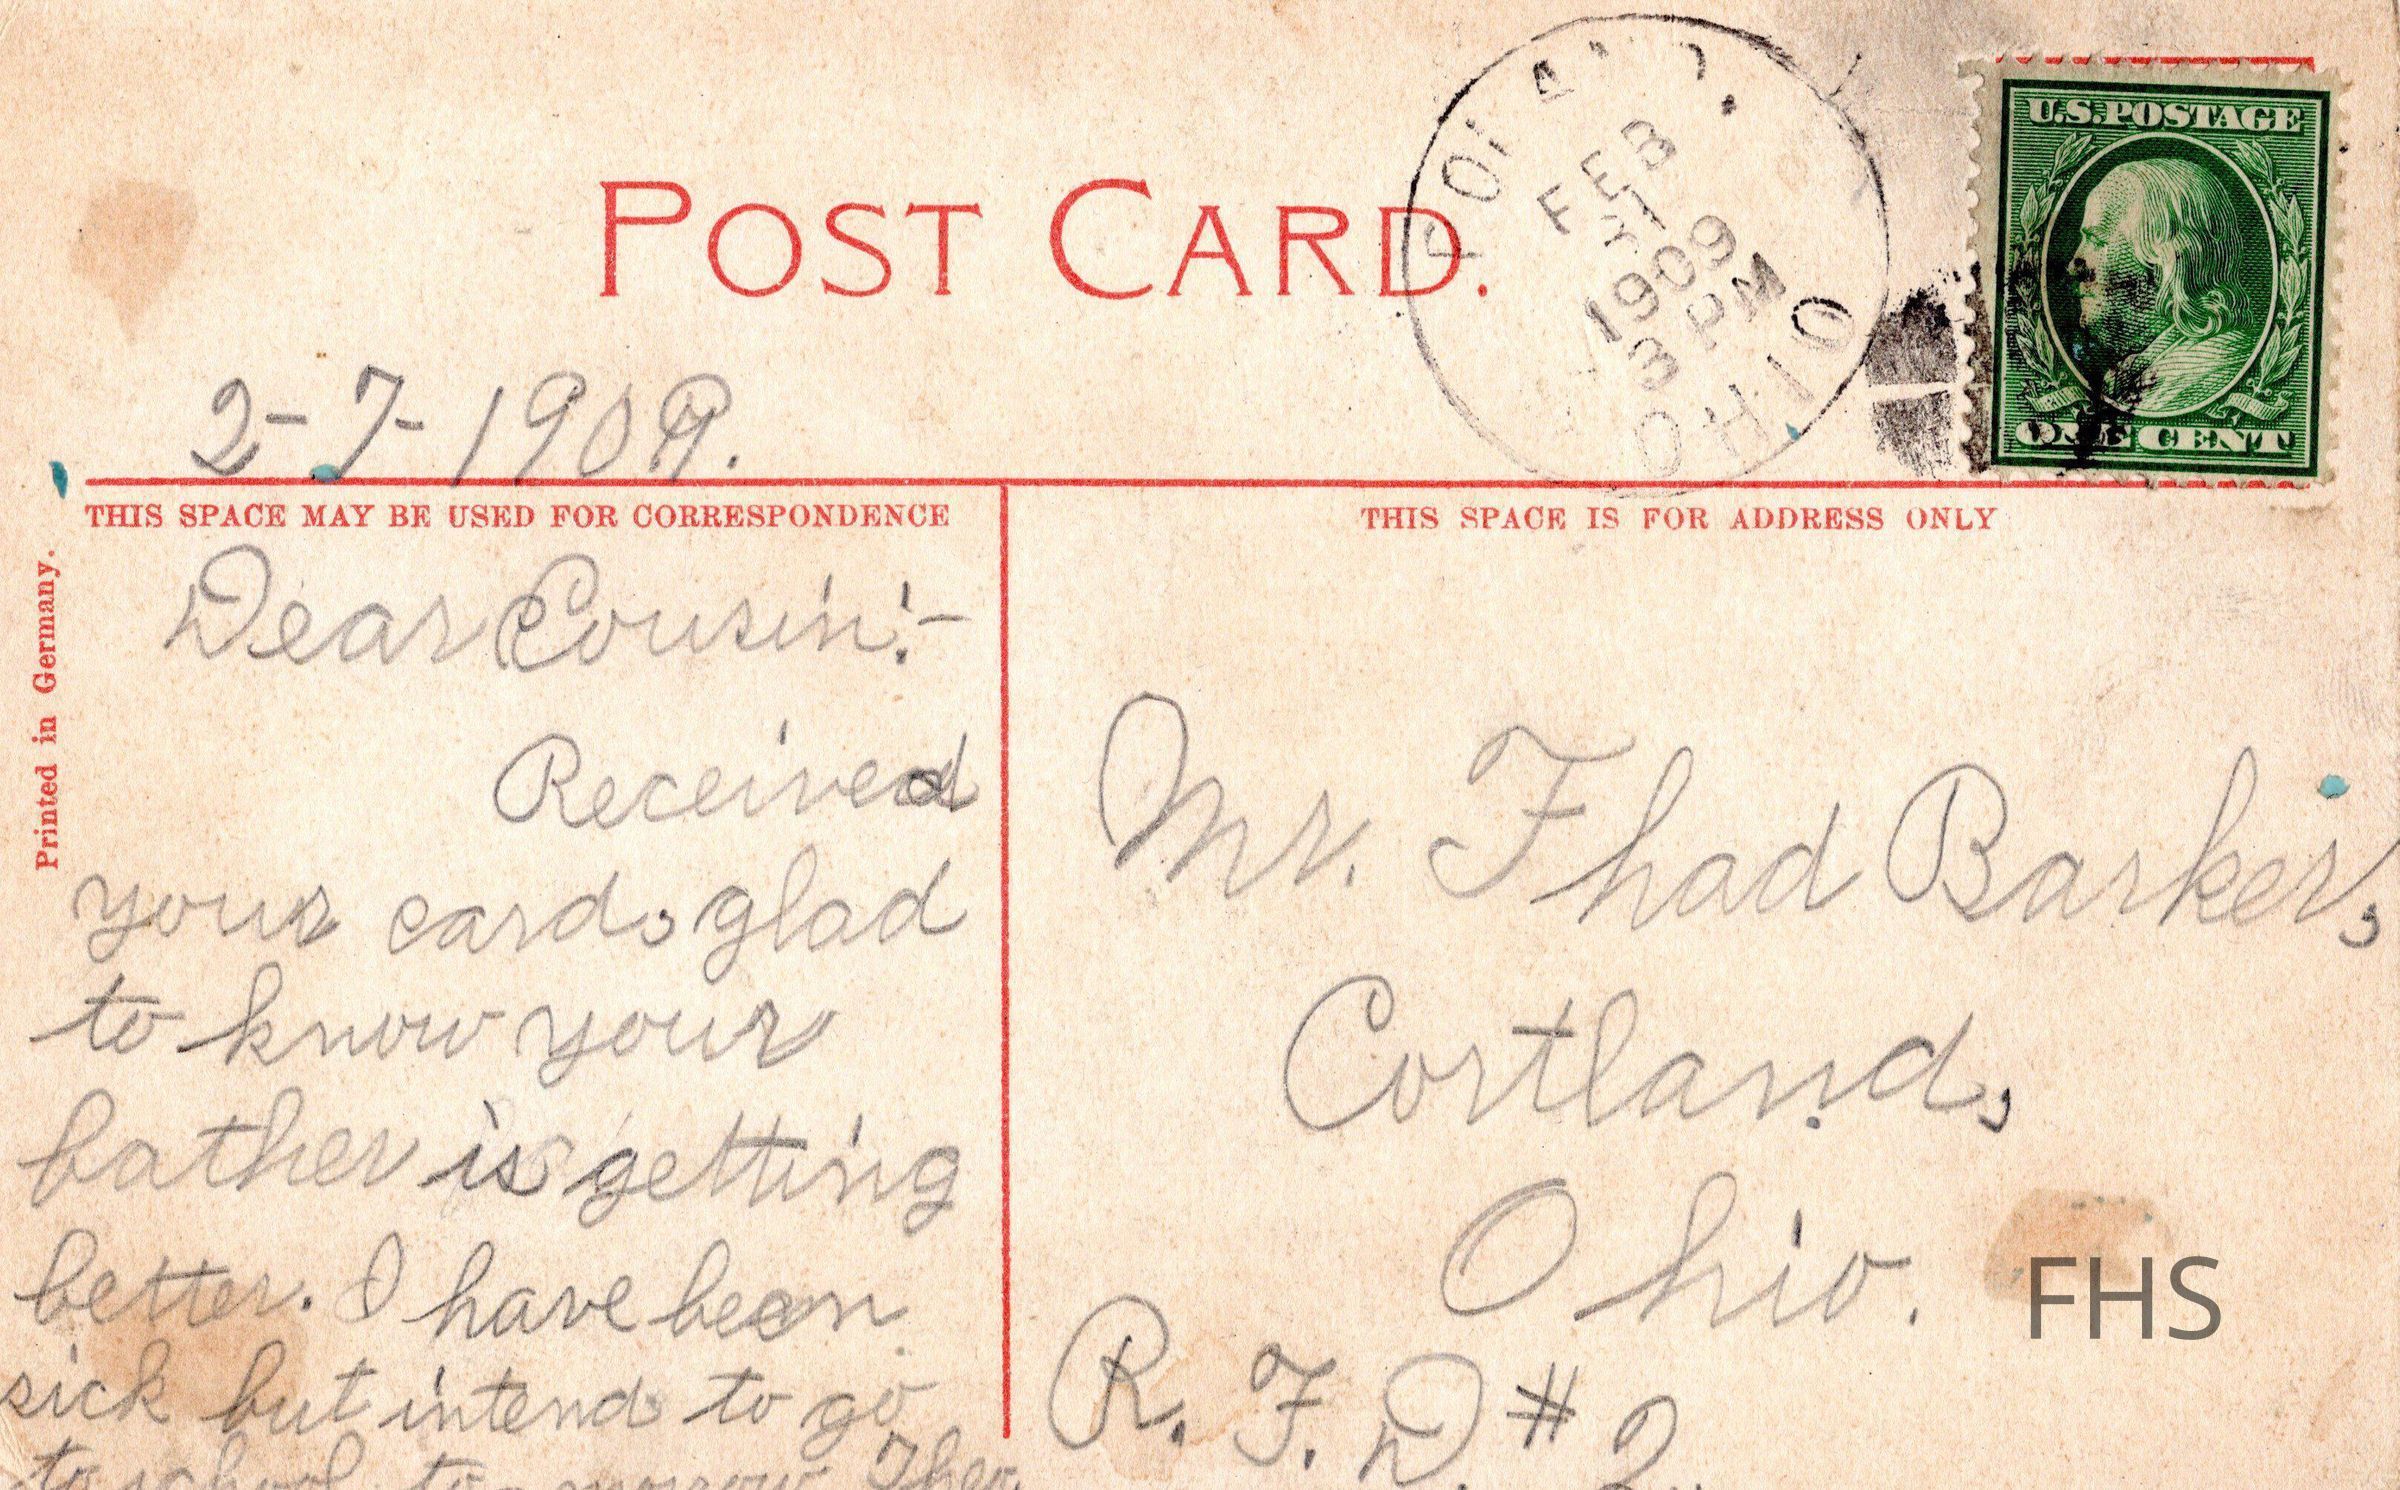 POST CARD.
POLAND.
OHIO
FEB
7
1909
3 PM
U.S. POSTAGE
ONE CENT
2-7-1909.
THIS SPACE MAY BE USED FOR CORRESPONDENCE
THIS SPACE IS FOR ADDRESS ONLY
Printed in Germany.
Dear Cousin:-
Received
your card, glad
to know your
father is getting
better. I have been
sick but intend to go
to school to-morrow
Mr. Thad Barker,
Cortland,
Ohio.
R. F. D. # 2.
FHS